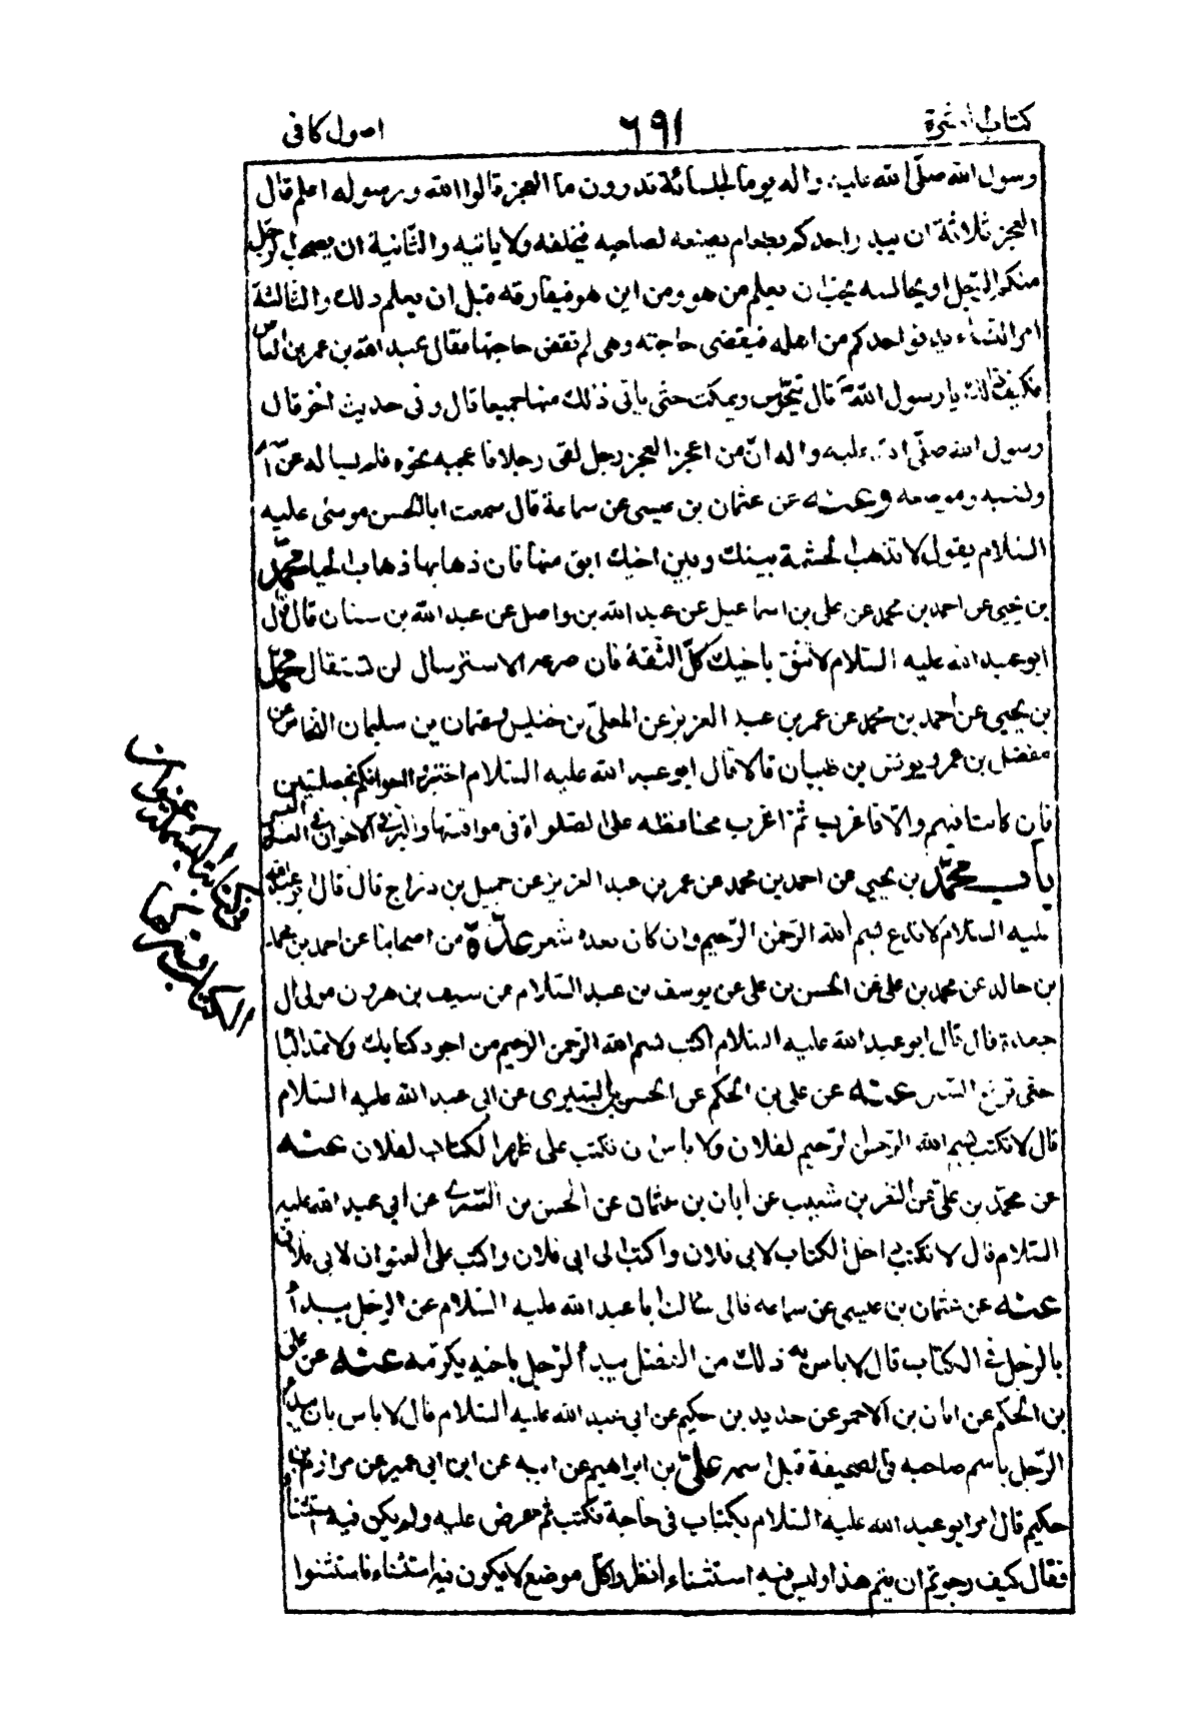 كتاب العشرة ٦٩١ اصول كافى
رسول الله صلّى الله عليه واله يوما لجلسائه تدرون ما العجز قالوا الله ورسوله اعلم قال
العجز ثلاثة ان يبدر احدكم بطعام يصنعه لصاحبه فيخلفه ولا ياتيه والثّانية ان يصحب الرّجل
منكم الرّجل او يجالسه يحبّ ان يعلم من هو ومن اين هو فيفارقه قبل ان يعلم ذلك والثّالثة
امر النّساء يدنو احدكم من اهله فيقضى حاجته وهى لم تقض حاجتها فقال عبد الله بن عمرو بن العاص
فكيف ذلك يا رسول الله قال يتحوّش ويمكث حتّى ياتى ذلك منهما جميعا قال وفى حديث اخر قال
رسول الله صلّى الله عليه واله انّ من اعجز العجز رجل لقى رجلا فاعجبه نحوه فلم يساله عن
ونسبه وموضعه وعنه عن عثمان بن عيسى عن سماعة قال سمعت ابا الحسن موسى عليه
السّلام يقول لا تذهب الحشمة بينك وبين اخيك ابق منها فان ذهابها ذهاب الحياء محمّد
بن يحيى عن احمد بن محمد عن على بن اسماعيل عن عبد الله بن واصل عن عبد الله بن سنان قال قال
ابو عبد الله عليه السّلام لا تثق باخيك كلّ الثّقة فان صرعة الاسترسال لن تستقال محمّد
بن يحيى عن احمد بن محمد عن عمر بن عبد العزيز عن المعلّى بن خنيس وعثمان بن سليمان النخاس عن
مفضل بن عمر ويونس بن ظبيان قالا قال ابو عبد الله عليه السّلام اختبروا اخوانكم بخصلتين
فان كانتا فيهم والّا فاعزب ثمّ اعزب محافظة على الصّلواة فى مواقيتها والبرّ فى الاخوان فى العسر واليسر
باب محمّد بن يحيى عن احمد بن محمد عن عمر بن عبد العزيز عن جميل بن درّاج قال قال ابو عبد الله
عليه السّلام لا تدع بسم الله الرّحمن الرّحيم وان كان بعده شعر عدّة من اصحابنا عن احمد بن محمد
بن خالد عن محمد بن على عن الحسن بن على عن يوسف بن عبد السّلام عن سيف بن هرون مولى ال
جعدة قال قال ابو عبد الله عليه السّلام اكتب بسم الله الرّحمن الرّحيم من اجود كتابك ولا تمدّ الباء
حتى ترفع السّين عنه عن على بن الحكم عن الحسن بن السّرى عن ابى عبد الله عليه السّلام
قال لا تكتب بسم الله الرّحمن الرّحيم لفلان ولا باس ان تكتب على ظهر الكتاب لفلان عنه
عن محمّد بن علىّ عن النضر بن شعيب عن ابان بن عثمان عن الحسن بن السّرى عن ابى عبد الله عليه
السّلام قال لا تكتب داخل الكتاب لابى فلان واكتب الى ابى فلان واكتب على العنوان لابى فلان
عنه عن عثمان بن عيسى عن سماعة قال سالت ابا عبد الله عليه السّلام عن الرّجل يبدأ
بالرّجل فى الكتاب قال لا باس به ذلك من الفضل يبدأ الرّجل باخيه يكرمه عنه عن على
بن الحكم عن ابان بن الاحمر عن حديد بن حكيم عن ابى عبد الله عليه السّلام قال لا باس بان يبدأ
الرّجل باسم صاحبه فى الصحيفة قبل اسمه علىّ بن ابراهيم عن ابيه عن ابن ابى عمير عن مرازم بن
حكيم قال امر ابو عبد الله عليه السّلام بكتاب فى حاجة فكتب ثم عرض عليه ولم يكن فيه استثناء
فقال كيف رجوتم ان يتم هذا وليس فيه استثناء انظروا كلّ موضع لا يكون فيه استثناء فاستثنوا